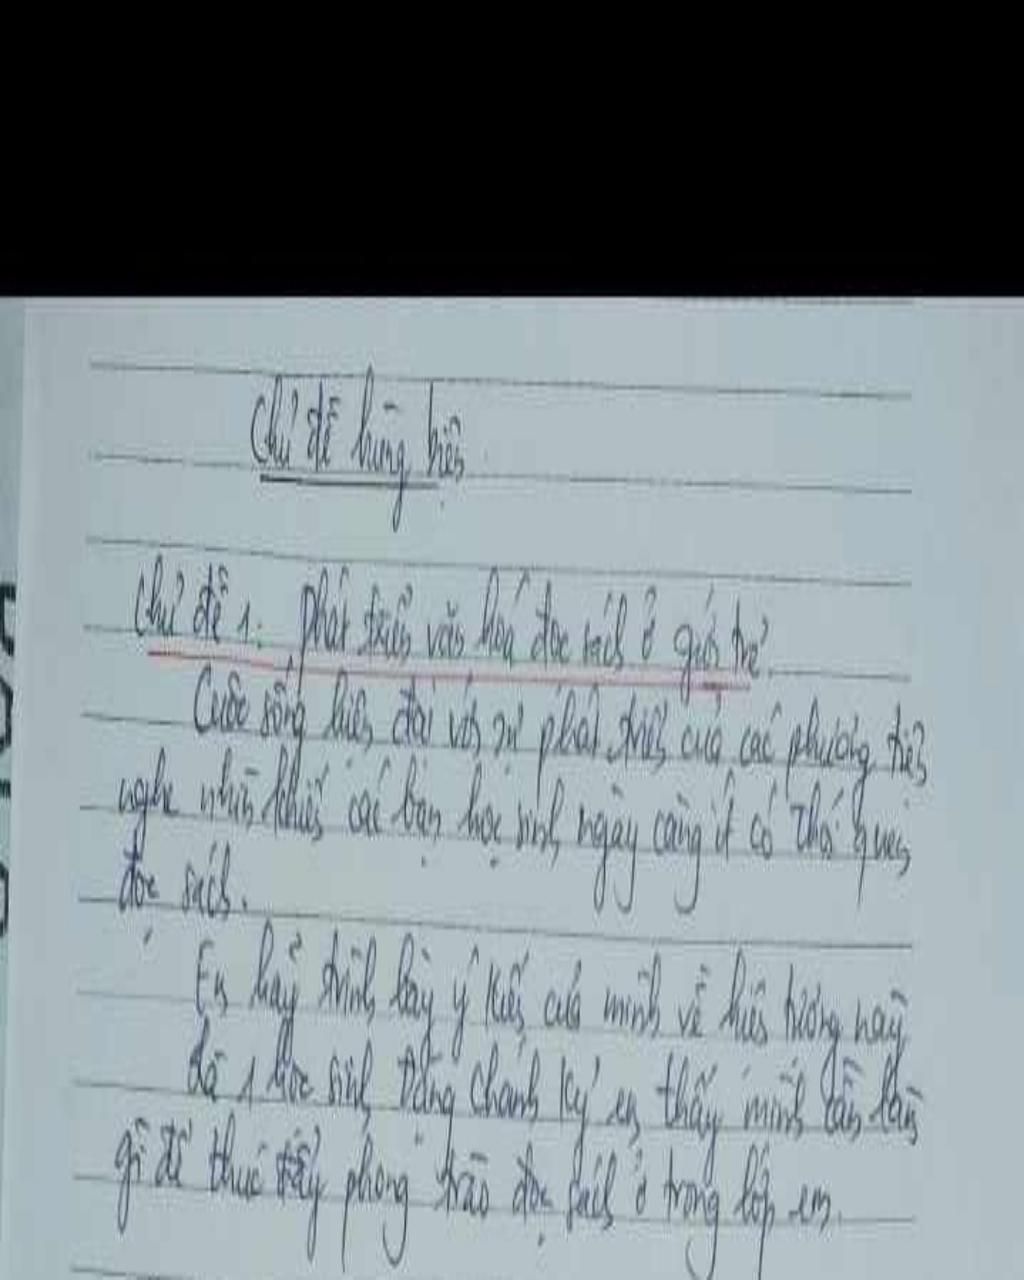 Chủ đề hùng biện
Chủ đề 1: phát triển văn hoá đọc sách ở giới trẻ.
Cuộc sống hiện đại với sự phát triển của các phương tiện
nghe nhìn khiến các bạn học sinh ngày càng ít có thói quen
đọc sách.
Em hãy trình bày ý kiến của mình về hiện tượng này
Là 1 học sinh Đặng Chánh Kỷ em thấy mình cần làm
gì để thúc đẩy phong trào đọc sách ở trong lớp em.